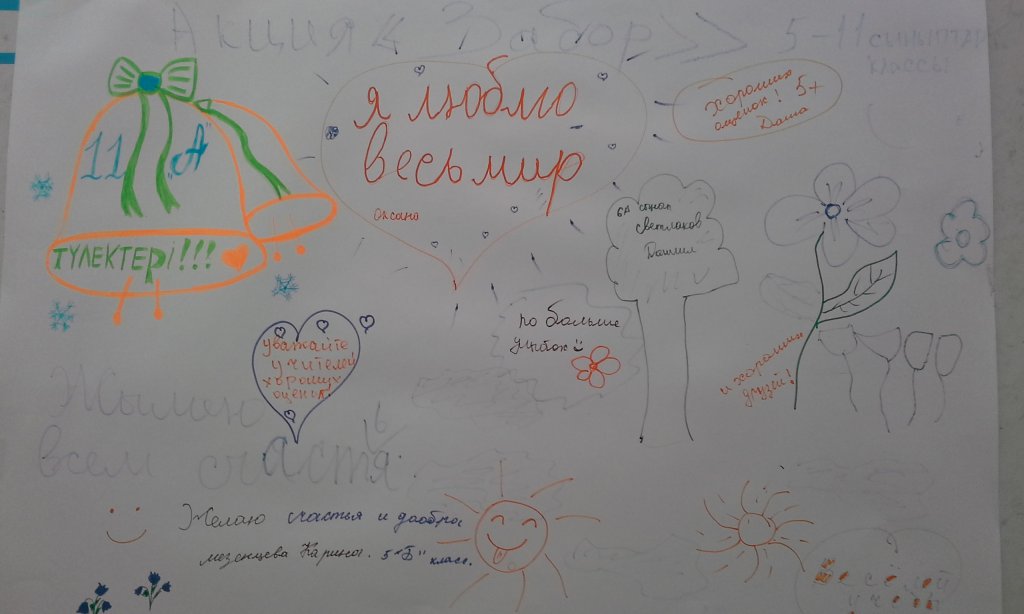 Акция « Забор >> 5-11 сыныптар
классы
11 "А"
ТҮЛЕКТЕРІ!!!
я люблю
весь мир
Оксана
хороших
оценок! 5+
Даша
6А сынып
светлаков
Даниил
по больше
улыбок
уважайте
учителей
хороших
оценок!
и хороших
друзей!
Желаю
всем счастья
Желаю счастья и добра
мезенцева Карина. 5"Б" класс.
Весёлый